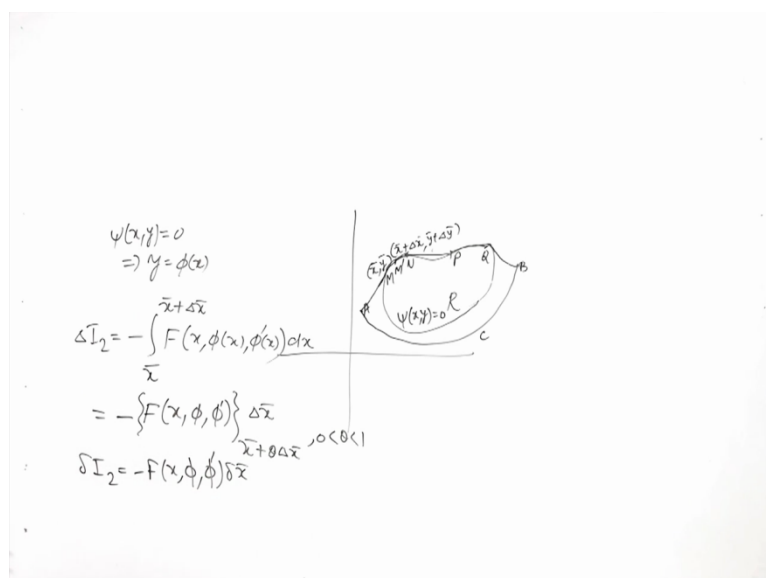 ψ(x,y)=0
=> y=ϕ(x)
ΔI₂=-∫_{x̄}^{x̄+Δx̄} F(x,ϕ(x),ϕ'(x))dx
= -{F(x,ϕ,ϕ')}_{x̄+θΔx̄} Δx̄ ,0<θ<1
δI₂=-F(x,ϕ,ϕ')δx̄
(x̄+Δx̄,ȳ+Δȳ)
(x̄,ȳ)
M M' N P Q B
A
ψ(x,y)=0 R
C